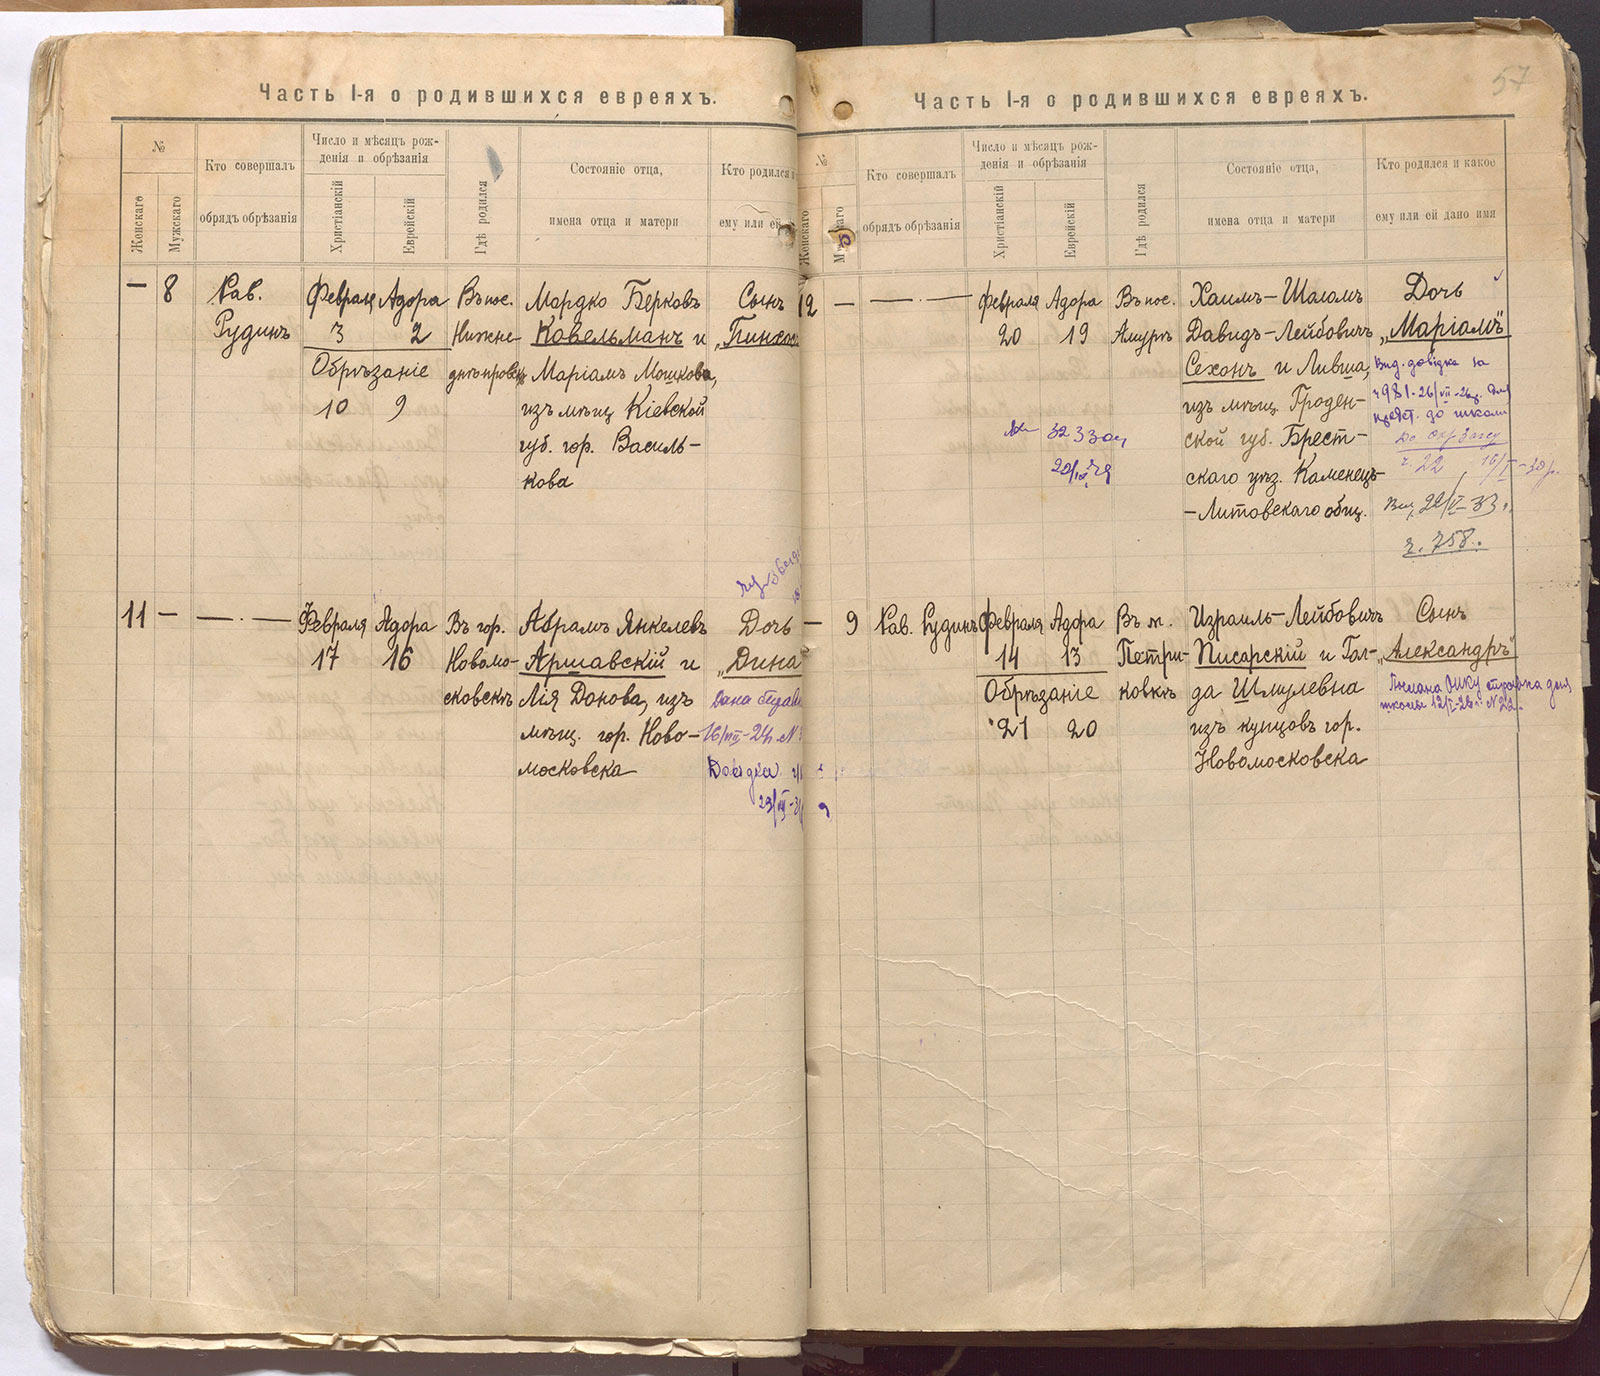 Часть I-я о родившихся евреяхъ.
№
Женскаго
Мужскаго
Кто совершалъ
обрядъ обрѣзанія
Число и мѣсяцъ рож-
денія и обрѣзанія
Христіанскій
Еврейскій
Гдѣ родился
Состояніе отца,
имена отца и матери
Кто родился и
ему или ей
— 8
Рав.
Рудинъ
Февраля
3
Адора
2
Обрѣзаніе
10 9
Въ пос.
Нижне-
днѣпровскъ
Мордко Берковъ
Ковельманъ и
Маріамъ Мошкова,
изъ мѣщ. Кіевской
губ. гор. Василь-
кова
Сынъ
„Пинхос
11 —
— . —
Февраля
17
Адора
16
Въ гор.
Новомо-
сковскъ
Абрамъ Янкелевъ
Аршавскій и
Лія Донова, изъ
мѣщ. гор. Ново-
московска
Дочь
„Дина
Дана
16/VIII-24 №
Довідка
29/
57
Часть I-я о родившихся евреяхъ.
№
Женскаго
Кто совершалъ
обрядъ обрѣзанія
Число и мѣсяцъ рож-
денія и обрѣзанія
Христіанскій
Еврейскій
Гдѣ родился
Состояніе отца,
имена отца и матери
Кто родился и какое
ему или ей дано имя
12 —
— . —
Февраля
20
Адора
19
Въ пос.
Амуръ
Хаимъ-Шаломъ
Давидъ-Лейбовичъ
Сеханъ и Ливша,
изъ мѣщ. Гроден-
ской губ. Брест-
скаго уѣз. Каменецъ-
-Литовскаго общ.
Дочь
„Маріамъ"
Вид. довідка за
до школи
ч. 22
22/IV-33
ч. 758.
— 9
Рав. Рудинъ
Февраля
14
Адора
13
Обрѣзаніе
21 20
Въ м.
Петри-
ковкъ
Израиль-Лейбовичъ
Писарскій и Гол-
да Шмулевна
изъ купцовъ гор.
Новомосковска
Сынъ
„Александръ"